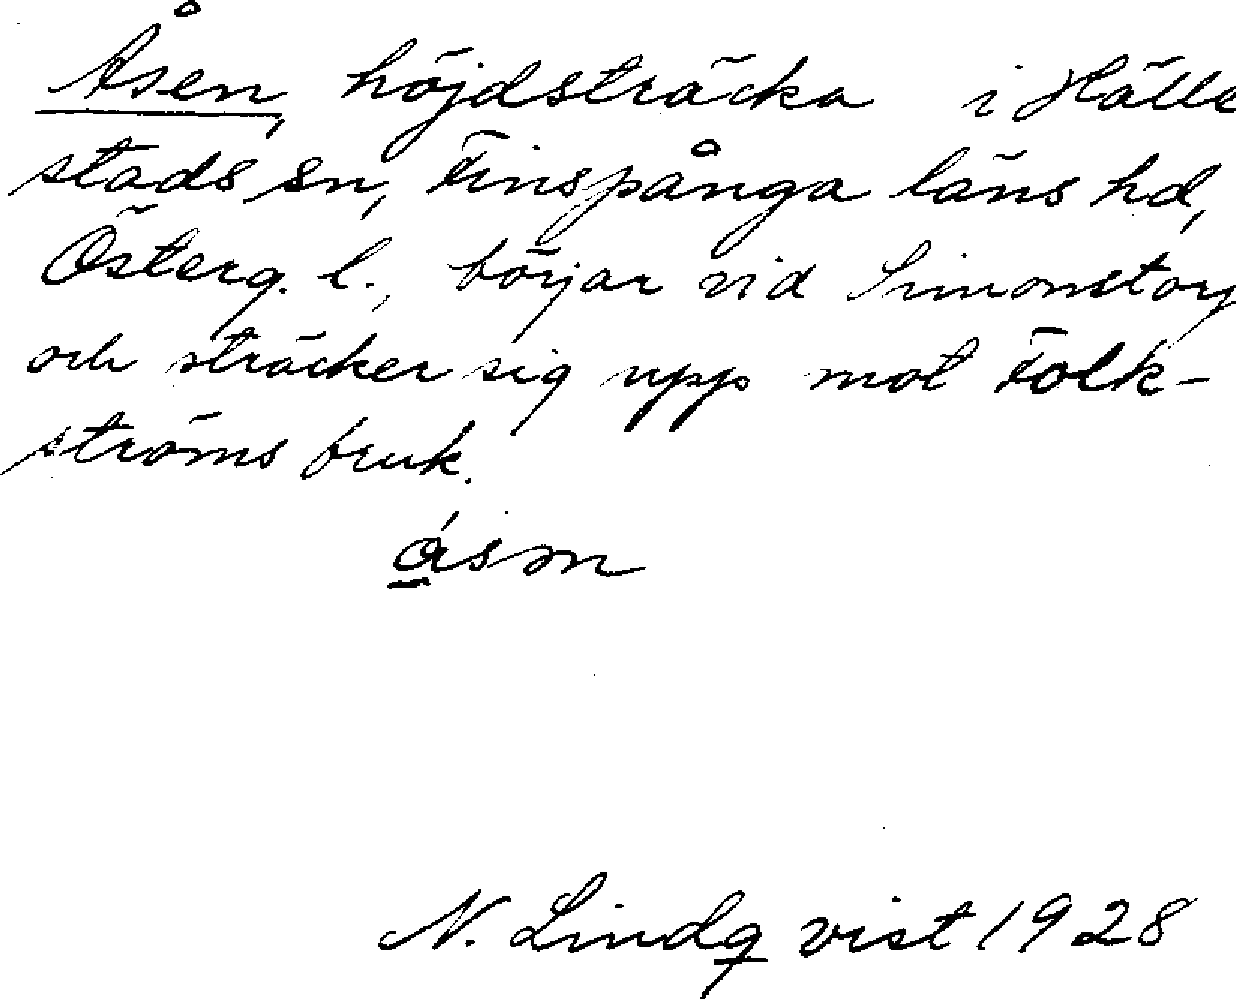 Åsen, höjdsträcka i Hälle
stads sn, Finspånga läns hd,
Österg. l., börjar vid Simonstorp
och sträcker sig upp mot Folk-
ströms bruk.
ásm
N. Lindqvist 1928